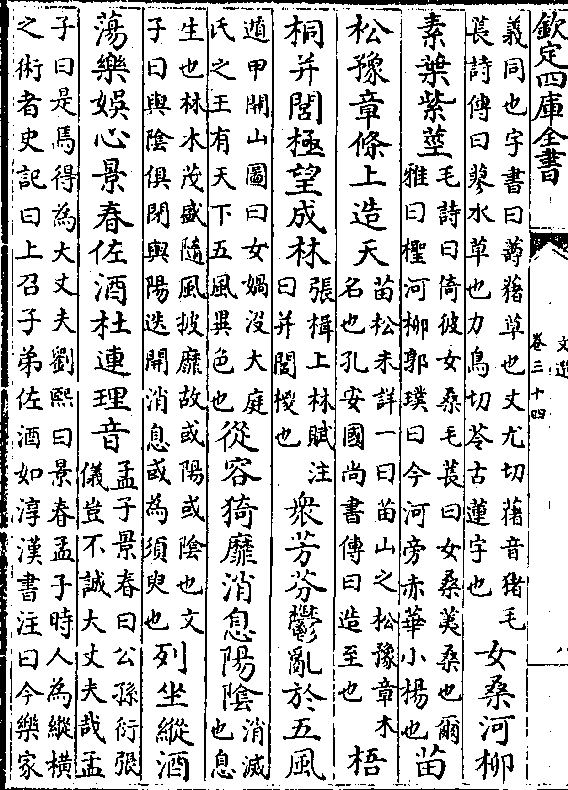 欽定四庫全書
文選
卷三十四
八
義同也字書曰薵藸草也丈尤切藸音猪毛
萇詩傳曰蓼水草也力鳥切苓古蓮字也
女桑河柳
素葉紫莖
毛詩曰倚彼女桑毛萇曰女桑荑桑也爾
雅曰檉河柳郭璞曰今河旁赤華小楊也
苗
松豫章條上造天
苗松未詳一曰苗山之松豫章木
名也孔安國尚書傳曰造至也
梧
桐并閭極望成林
張楫上林賦注
曰并閭椶也
衆芳芬鬱亂於五風
遁甲開山圖曰女媧沒大庭
氏之王有天下五風異色也
從容猗靡消息陽陰
消滅
也息
生也林木茂盛隨風披靡故或陽或陰也文
子曰與陰俱閉與陽迭開消息或為須臾也
列坐縱酒
蕩樂娛心景春佐酒杜連理音
孟子景春曰公孫衍張
儀豈不誠大丈夫哉孟
子曰是焉得為大丈夫劉熙曰景春孟子時人為縱橫
之術者史記曰上召子弟佐酒如淳漢書注曰今樂家